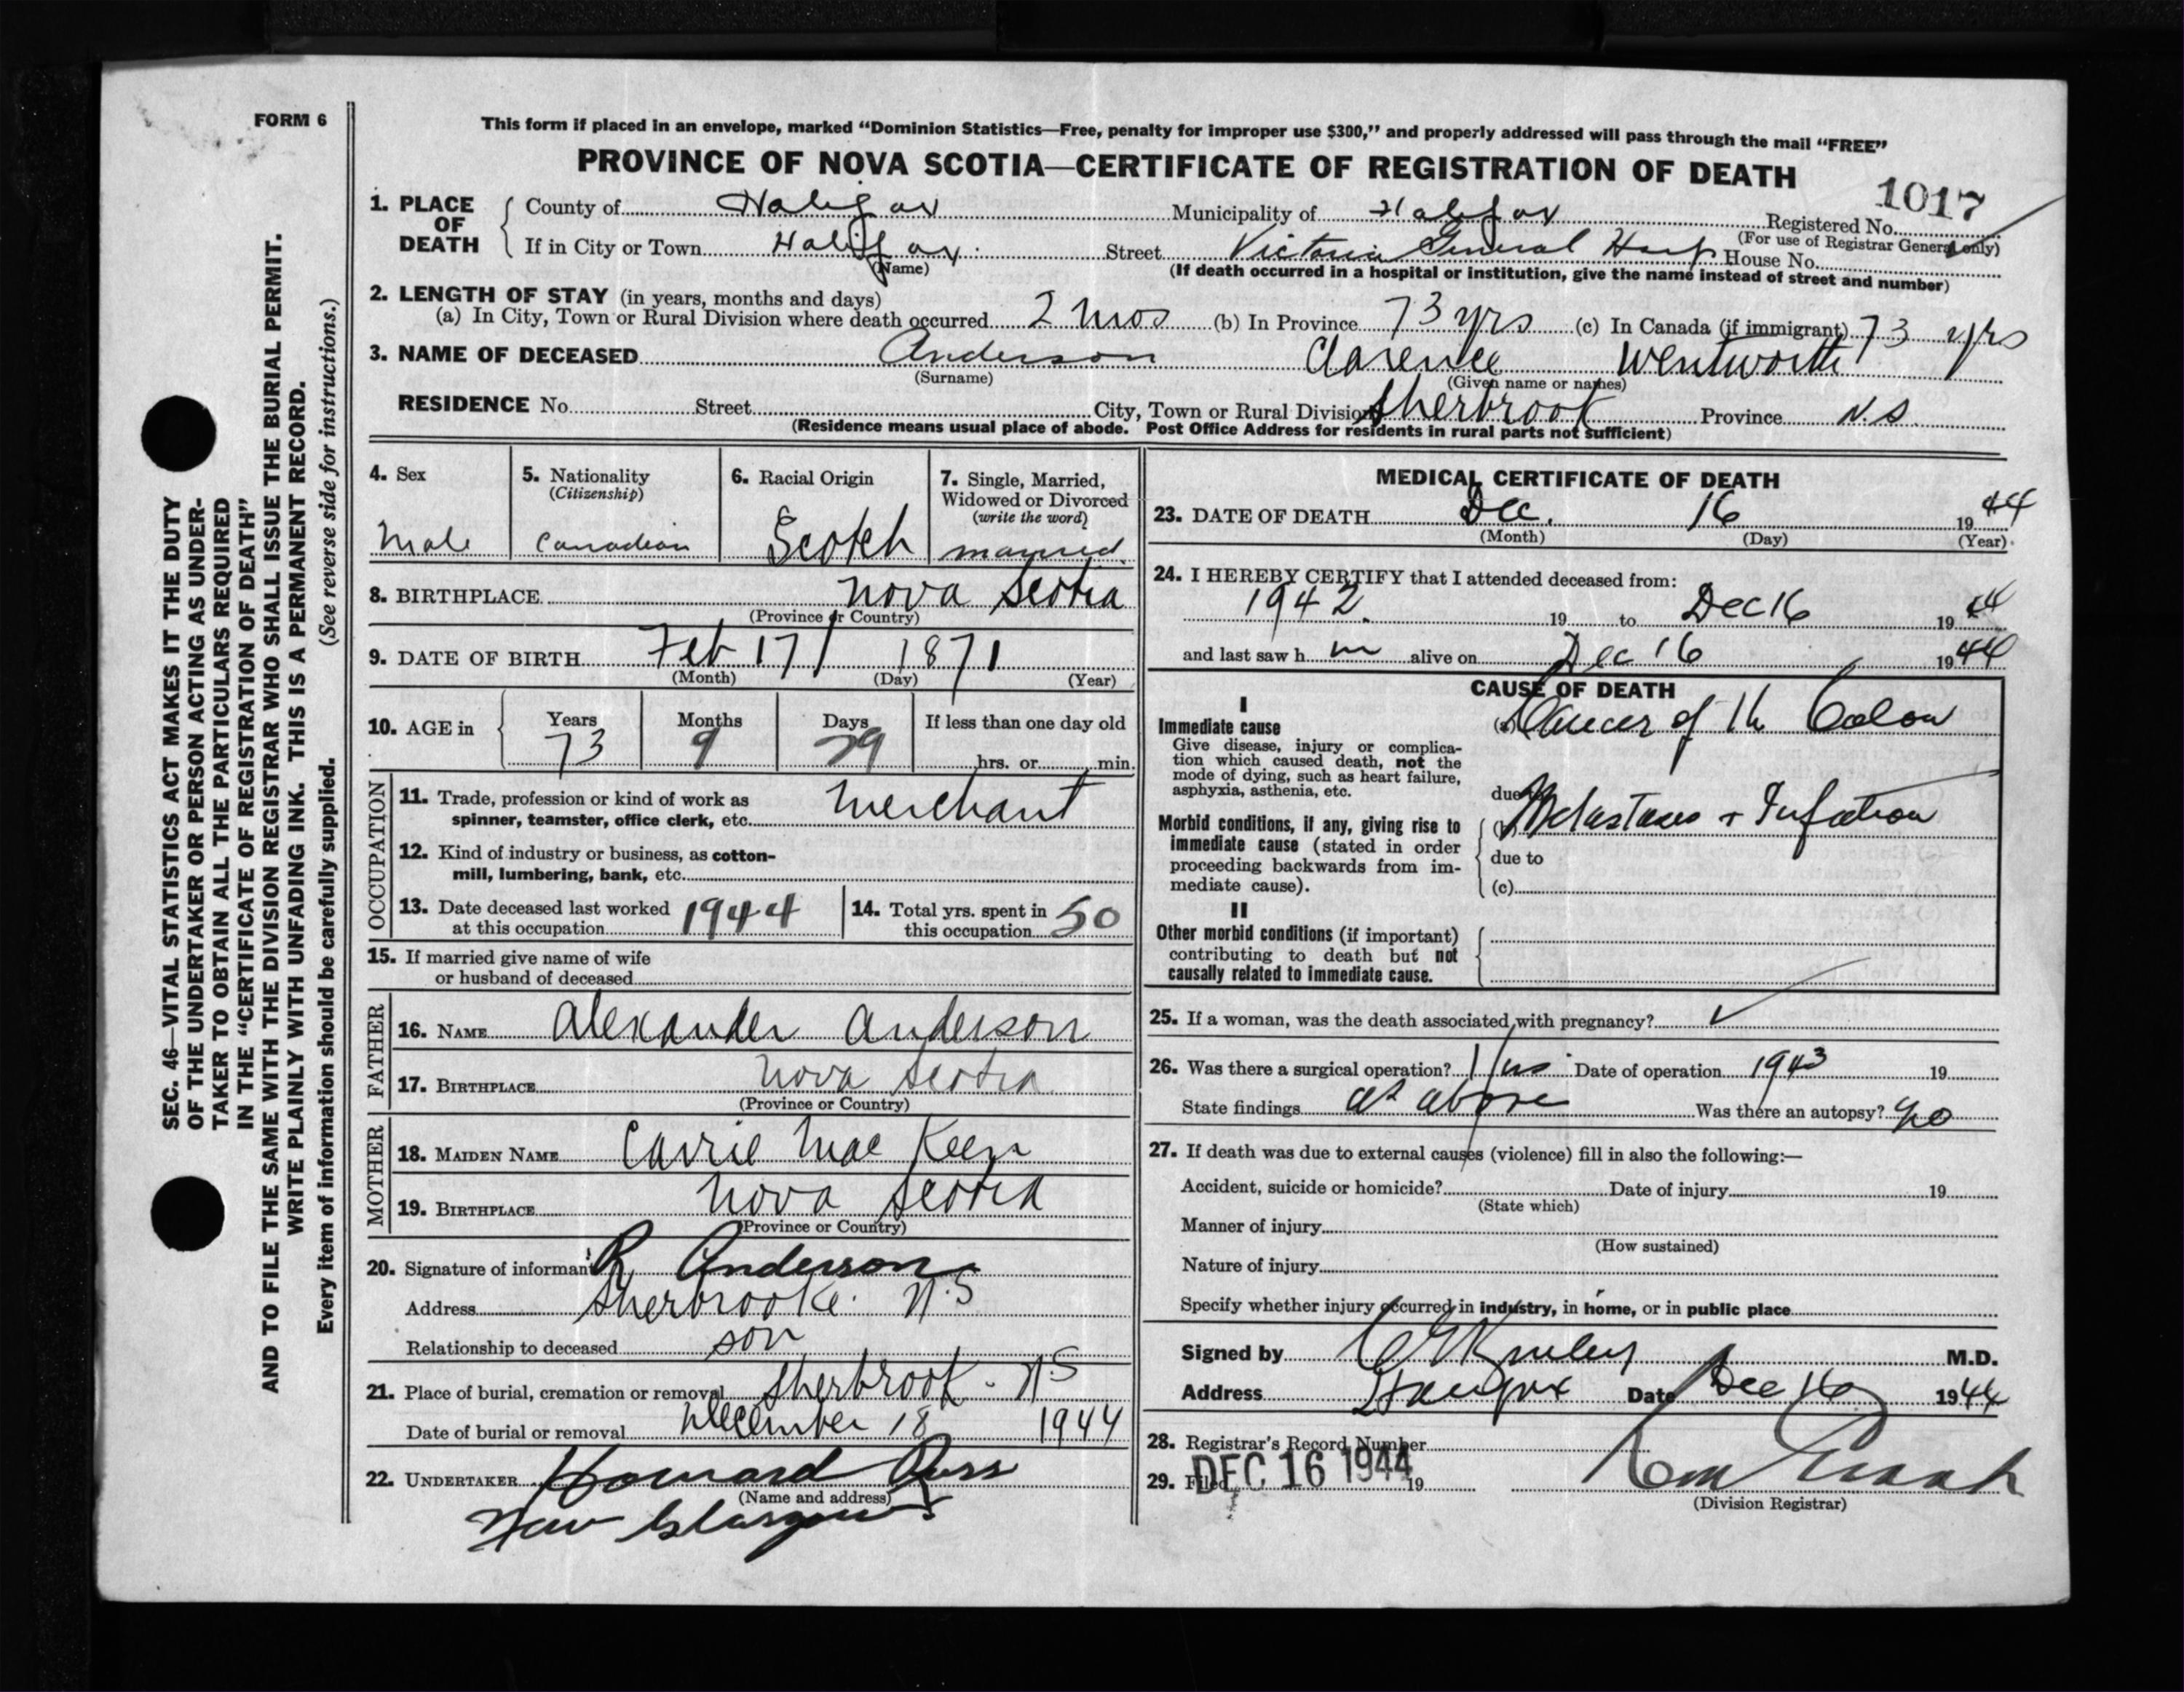 FORM 6
This form if placed in an envelope, marked “Dominion Statistics—Free, penalty for improper use $300,” and properly addressed will pass through the mail “FREE”
PROVINCE OF NOVA SCOTIA—CERTIFICATE OF REGISTRATION OF DEATH
1017
1. PLACE OF DEATH
County of Halifax Municipality of Halifax Registered No.
(For use of Registrar General only)
If in City or Town Halifax Street Victoria General Hosp House No.
(Name)
(If death occurred in a hospital or institution, give the name instead of street and number)
2. LENGTH OF STAY (in years, months and days)
(a) In City, Town or Rural Division where death occurred 2 mos (b) In Province 73 yrs (c) In Canada (if immigrant) 73 yrs
3. NAME OF DECEASED Anderson Clarence Wentworth
(Surname) (Given name or names)
RESIDENCE No. Street City, Town or Rural Division Sherbrook Province N.S.
(Residence means usual place of abode. Post Office Address for residents in rural parts not sufficient)
4. Sex
Male
5. Nationality
(Citizenship)
Canadian
6. Racial Origin
Scotch
7. Single, Married,
Widowed or Divorced
(write the word)
married
8. BIRTHPLACE Nova Scotia
(Province or Country)
9. DATE OF BIRTH Feb 17 1871
(Month) (Day) (Year)
10. AGE in
Years Months Days If less than one day old
73 9 29 hrs. or min.
OCCUPATION
11. Trade, profession or kind of work as
spinner, teamster, office clerk, etc. Merchant
12. Kind of industry or business, as cotton-
mill, lumbering, bank, etc.
13. Date deceased last worked
at this occupation 1944
14. Total yrs. spent in
this occupation 50
15. If married give name of wife
or husband of deceased
FATHER
16. NAME Alexander Anderson
17. BIRTHPLACE Nova Scotia
(Province or Country)
MOTHER
18. MAIDEN NAME Carrie Mac Keen
19. BIRTHPLACE Nova Scotia
(Province or Country)
20. Signature of informant R Anderson
Address Sherbrooke. N.S
Relationship to deceased son
21. Place of burial, cremation or removal Sherbrook - NS
Date of burial or removal December 18 1944
22. UNDERTAKER Howard Ross
(Name and address)
New Glasgow
MEDICAL CERTIFICATE OF DEATH
23. DATE OF DEATH Dec. 16 1944
(Month) (Day) (Year)
24. I HEREBY CERTIFY that I attended deceased from:
1942. 19 to Dec 16 1944
and last saw h m alive on Dec 16 1944
CAUSE OF DEATH
I
Immediate cause
Give disease, injury or complica-
tion which caused death, not the
mode of dying, such as heart failure,
asphyxia, asthenia, etc.
(a) Cancer of th Colon
due to
Morbid conditions, if any, giving rise to
immediate cause (stated in order
proceeding backwards from im-
mediate cause).
(b) Metastases + Infection
due to
(c)
II
Other morbid conditions (if important)
contributing to death but not
causally related to immediate cause.
25. If a woman, was the death associated with pregnancy?
26. Was there a surgical operation? Yes Date of operation 1943 19
State findings as above Was there an autopsy? No
27. If death was due to external causes (violence) fill in also the following:—
Accident, suicide or homicide? Date of injury 19
(State which)
Manner of injury
(How sustained)
Nature of injury
Specify whether injury occurred in industry, in home, or in public place
Signed by M.D.
Address Halifax Date Dec 16 1944
28. Registrar's Record Number
29. Filed DEC 16 1944 19
(Division Registrar)
SEC. 46—VITAL STATISTICS ACT MAKES IT THE DUTY
OF THE UNDERTAKER OR PERSON ACTING AS UNDER-
TAKER TO OBTAIN ALL THE PARTICULARS REQUIRED
IN THE “CERTIFICATE OF REGISTRATION OF DEATH”
AND TO FILE THE SAME WITH THE DIVISION REGISTRAR WHO SHALL ISSUE THE BURIAL PERMIT.
WRITE PLAINLY WITH UNFADING INK. THIS IS A PERMANENT RECORD.
Every item of information should be carefully supplied. (See reverse side for instructions.)